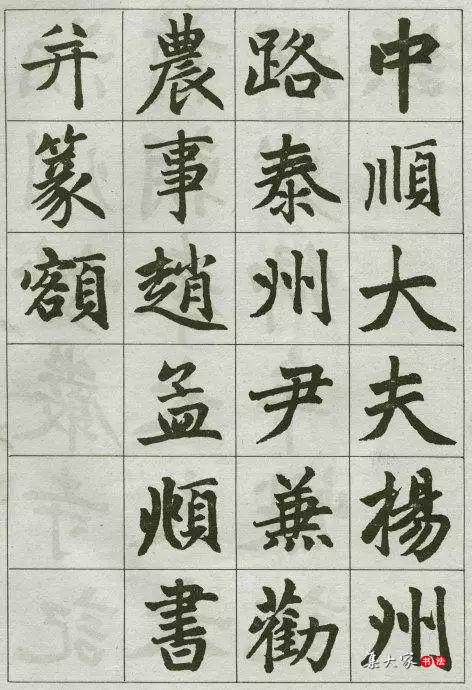 中順大夫楊州
路泰州尹兼勸
農事趙孟頫書
并篆額
集大家书法